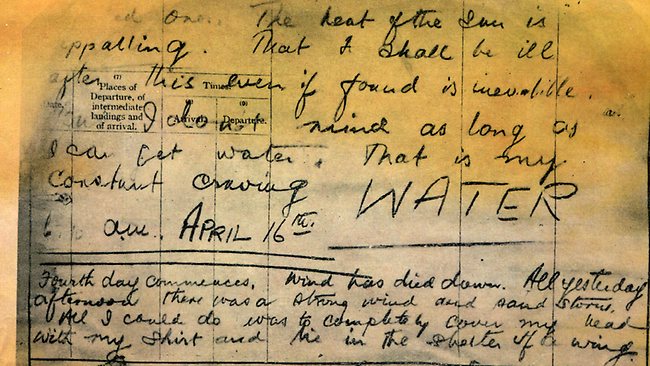 One. The heat of the Sun is
appalling. That I shall be ill
after this even if found is inevitable.
(7)
Places of
Departure, of
intermediate
landings and
of arrival.
Times
Date.
Arrival.
(9)
Departure.
I do not mind as long as
I can get water. That is my
constant craving WATER
am. APRIL 16th.
Fourth day commences. Wind has died down. All yesterday
afternoon there was a strong wind and sand storm.
All I could do was to completely cover my head
with my shirt and lie in the shelter of a wing.